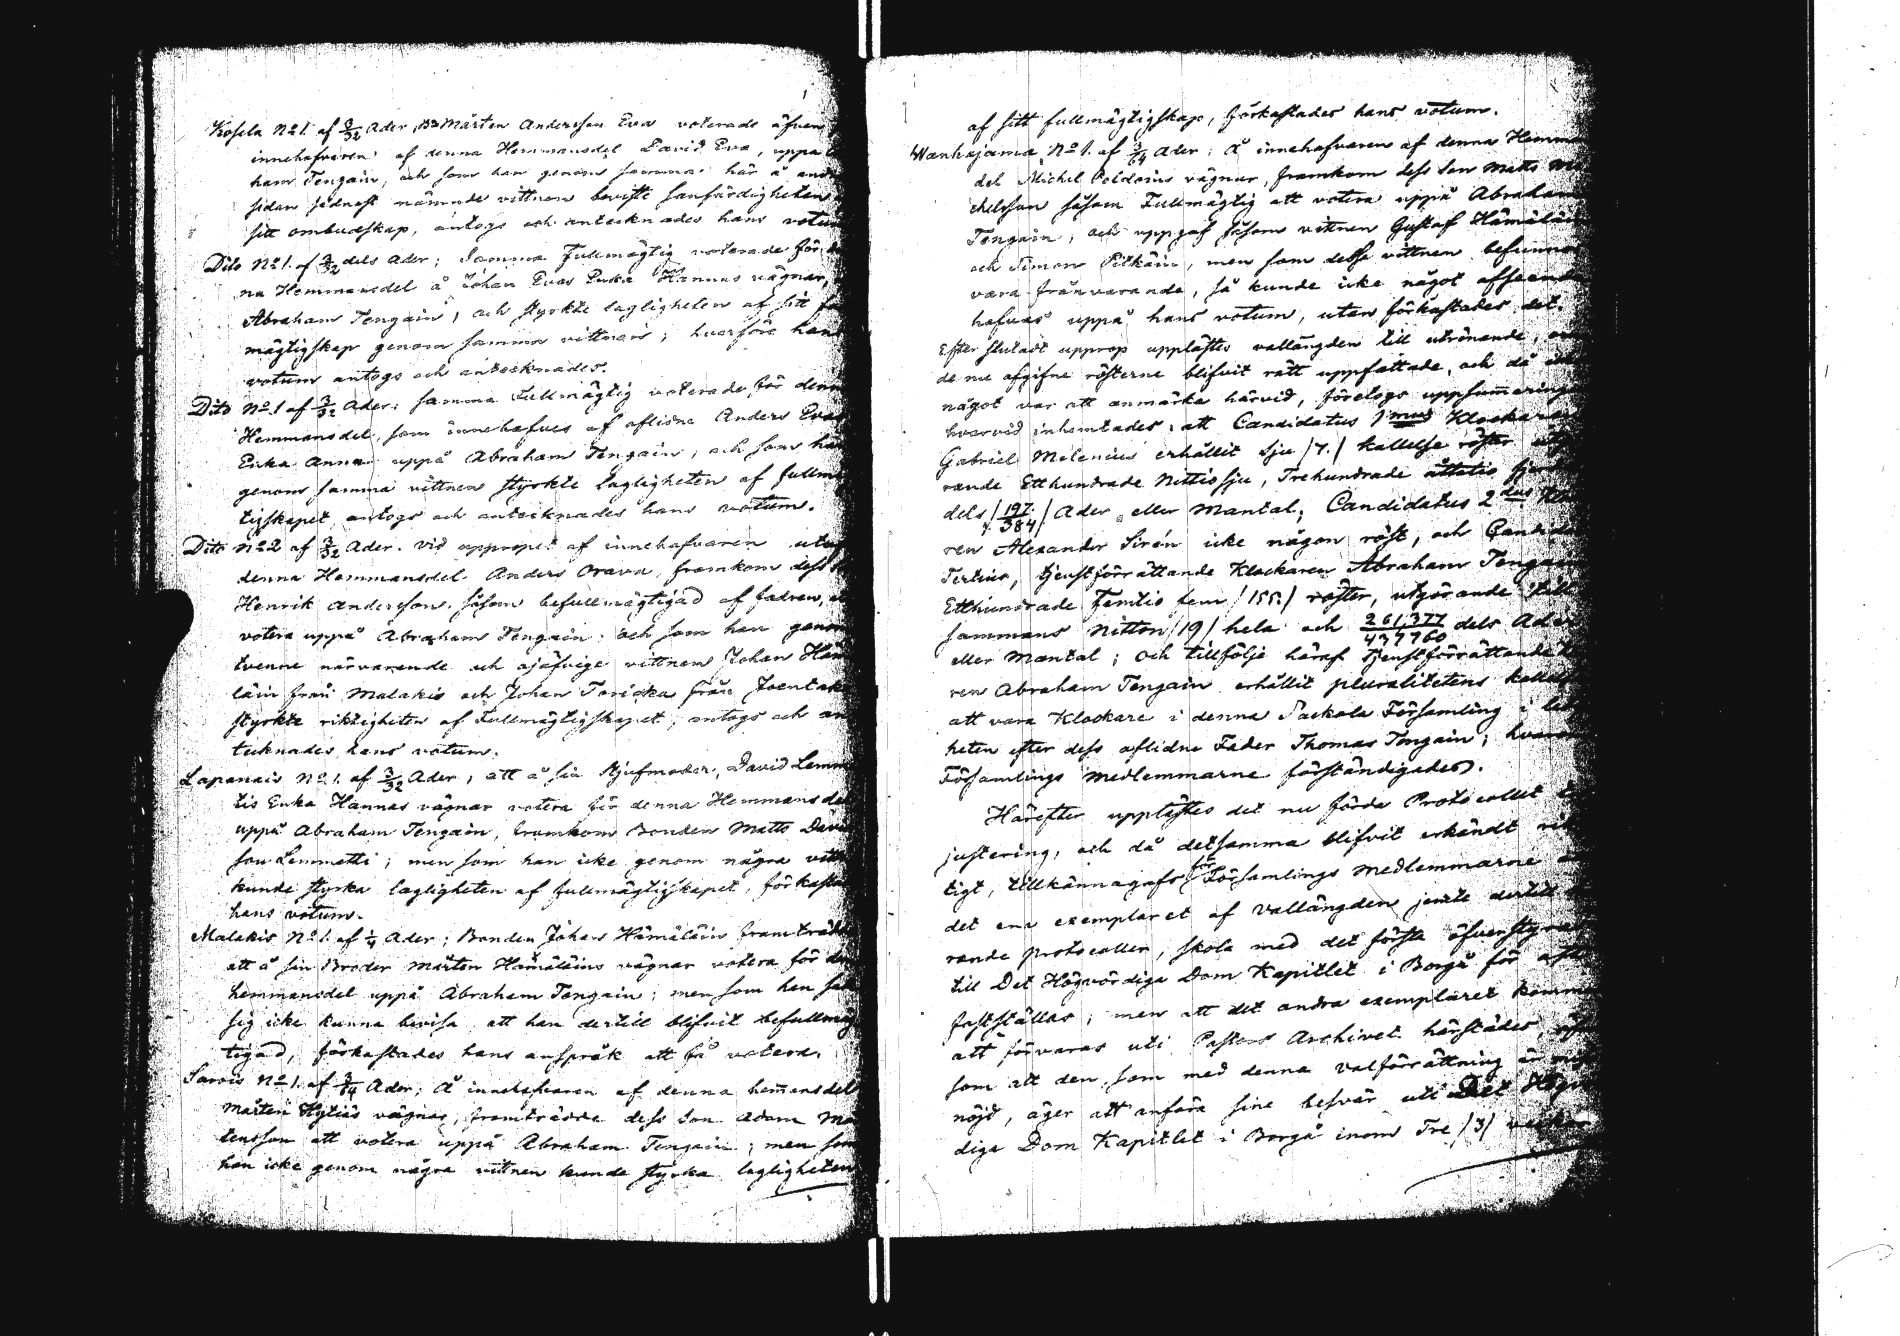 Kosela No 1. af 3/32 Ader, Bn Mårten Andersson Eva voterade äfven
innehafvaren af denna Hemmansdel David Eva, uppå
ham Tengain, och som han genom samma här å andra
sidan sednast nämnde vittnen beviste sanfärdigheten
sitt ombudskap, antogs och antecknades hans votum
Dito No 1. af 3/32 dels Ader; Samma Fullmägtig voterade för
na Hemmansdel å Johan Evas Enka Hannas vägnar,
Abraham Tengain; och styrkte lagligheten af sitt
mägtigskap genom samma vittnen; hvarföre hans
votum antogs och antecknades.
Dito No 1 af 3/32 Ader: samma Fullmägtig voterade för denna
Hemmansdel, som innehafves af aflidne Anders Evas
Enka Anna uppå Abraham Tengain, och som han
genom samma vittnen styrkte lagligheten af fullmäg
tigskapet, antogs och antecknades hans votum.
Dito No 2 af 3/32 Ader. Vid uppropet af innehafvaren utaf
denna Hemmansdel Anders Orava, framkom dess
Henrik Andersson, såsom befullmägtigad af fadren,
votera uppå Abraham Tengain; och som han genom
tvenne närvarande och ojäfvige vittnen Johan Hämä
läin från Malakis och Johan Toricka från
styrkte riktigheten af Fullmägtigskapet; antogs och an
tecknades hans votum.
Lapanais No 1. af 3/32 Ader; att å sin Stjufmoder, David Lemm
tis Enka Hannas vägnar votera för denna Hemmansdel
uppå Abraham Tengain, framkom Bonden Matts Davids
son Lemmetti; men som han icke genom några vittnen
kunde styrka lagligheten af fullmägtigskapet, förkastades
hans votum.
Malakis No 1. af 1/4 Ader; Bonden Johan Hämäläin framträdde
att å sin Broder Mårten Hämäläins vägnar votera för denna
hemmansdel uppå Abraham Tengain; men som han sade
sig icke kunna bevisa, att han dertill blifvit befullmäg
tigad, förkastades hans anspråk att få votera.
Sarvis No 1. af 3/64 Ader; Å innehafvaren af denna hemansdel
Mårten Hytiäs vägnar, framträdde dess Son Adam Mår
tensson att votera uppå Abraham Tengain; men som
han icke genom några vittnen kunde styrka lagligheten
af sitt fullmägtigskap, förkastades hans votum.
Wanhajama No 1. af 3/64 Ader; Å innehafvaren af denna Hemmans
del Michel Poldains vägnar, framkom dess Son Matts Mi
chelsson såsom Fullmägtig att votera uppå Abraham
Tengain; och uppgaf såsom vittnen Gustaf Hämäläin
och Simon Pitkäin, men som desse vittnen befunnos
vara frånvarande, så kunde icke något afseende
hafvas uppå hans votum, utan förkastades det.
Efter slutadt upprop upplästes vallängden till utrönande, om
de nu afgifne rösterne blifvit rätt uppfattade, och då icke
något var att anmärka härvid, företogs uppsummeringen
hvarvid inhemtades: att Candidatus 1mus Klockaren
Gabriel Melenius erhållit sju /7./ kallelse röster utgö
rande Etthundrade Nittiosju, Trehundrade åttatio fjerde
dels /197/384/ Ader eller Mantal; Candidatus 2dus Klocka
ren Alexander Sirén icke någon röst, och Candidatus
Tertius, tjenstförrättande Klockaren Abraham Tengain
Etthundrade femtio fem /155./ röster, utgörande till
sammans Nitton /19/ hela och 261,377/437760 dels Ader
eller Mantal; och tillfölje häraf tjenstförrättande Klocka
ren Abraham Tengain erhållit pluralitetens kallelse
att vara Klockare i denna Sackola Församling i ledig
heten efter dess aflidne Fader Thomas Tengain; hvarom
Församlings medlemmarne förständigades.
Härefter upplästes det nu förda Protocollet till
justering, och då detsamma blifvit erkändt rik
tigt, tillkännagafs för Församlings medlemmarne att
det ena exemplaret af vallängden jemte dertill
rande protocoller, skola med det första öfverstyras
till Det Högvördiga Dom Kapitlet i Borgå för att
fastställas; men att det andra exemplaret kommer
att förvaras uti Pastors Archivet härstädes, äfven
som att den, som med denna valförrättning är miss
nöjd, äger att anföra sine besvär uti Det Högvör
diga Dom Kapitlet i Borgå inom Tre /3/ veckor